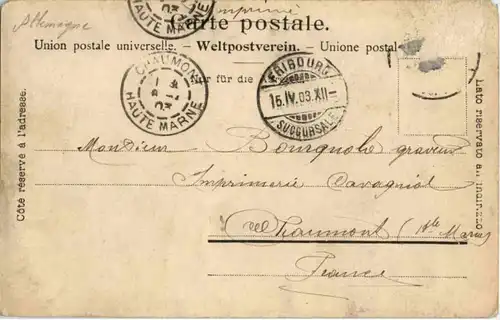 Allemagne
imprimé
Carte postale.
Union postale universelle. - Weltpostverein. - Unione postal
Nur für die
CHAUMONT
HAUTE MARNE
03
HAUTE MARNE
FRIBOURG
15.IV.03.XII-
SUCCURSALE
Côté réservé à l'adresse.
Lato riservato all'indirizzo
Monsieur Bourgnole graveur
Imprimerie Cavaniol
Chaumont (Hte Marne)
France